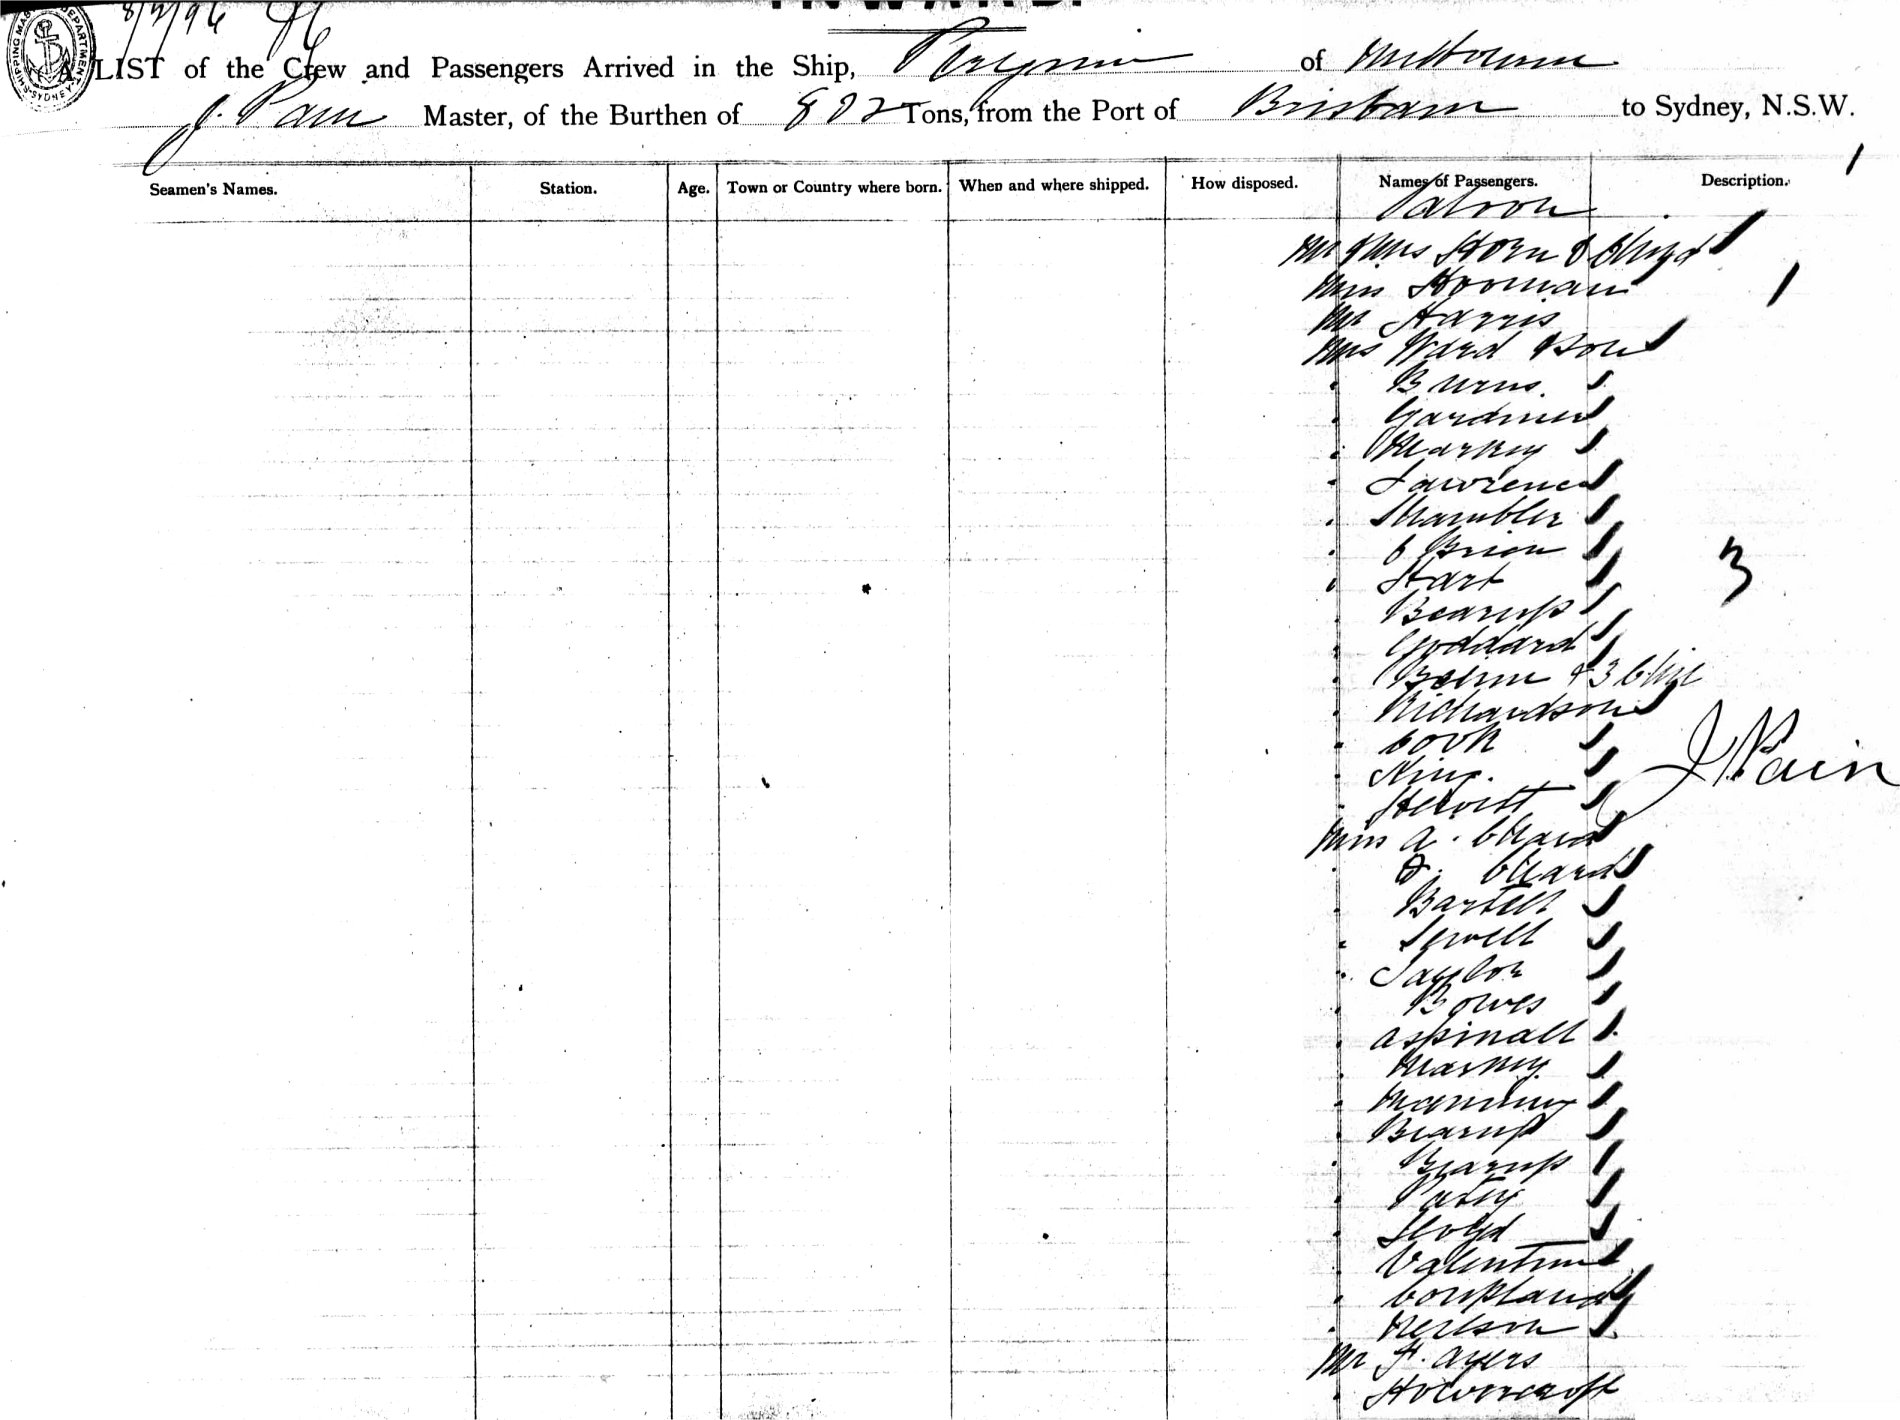 INWARD.
8/2/96
SHIPPING MASTER'S DEPARTMENT SYDNEY
A LIST of the Crew and Passengers Arrived in the Ship, Peregrine of Melbourne
J. Pain Master, of the Burthen of 802 Tons, from the Port of Brisbane to Sydney, N.S.W.
Seamen's Names. Station. Age. Town or Country where born. When and where shipped. How disposed. Names of Passengers. Description.
Saloon
Mr & Mrs Horn & Child
Miss Hooman
Mr Harris
Mrs Ward & son
" Burns.
" Gardiner
" Markey
" Lawrence
" Shambler
" O Brien
" Hart
" Bearup
" Goddard
" Beirne & 3 Chil
" Richardson
" Cook
" King.
" Hewitt
3
J Pain
Miss A. Chard
" Chard
" Bartell
" Sewell
" Taylor
" Bowes
" Aspinall
" Markey
" Manning
" Bearup
" Bearup
" Lloyd
" Valentine
" Coupland
" Neilson
Mr F. Ayers
" Howcroft